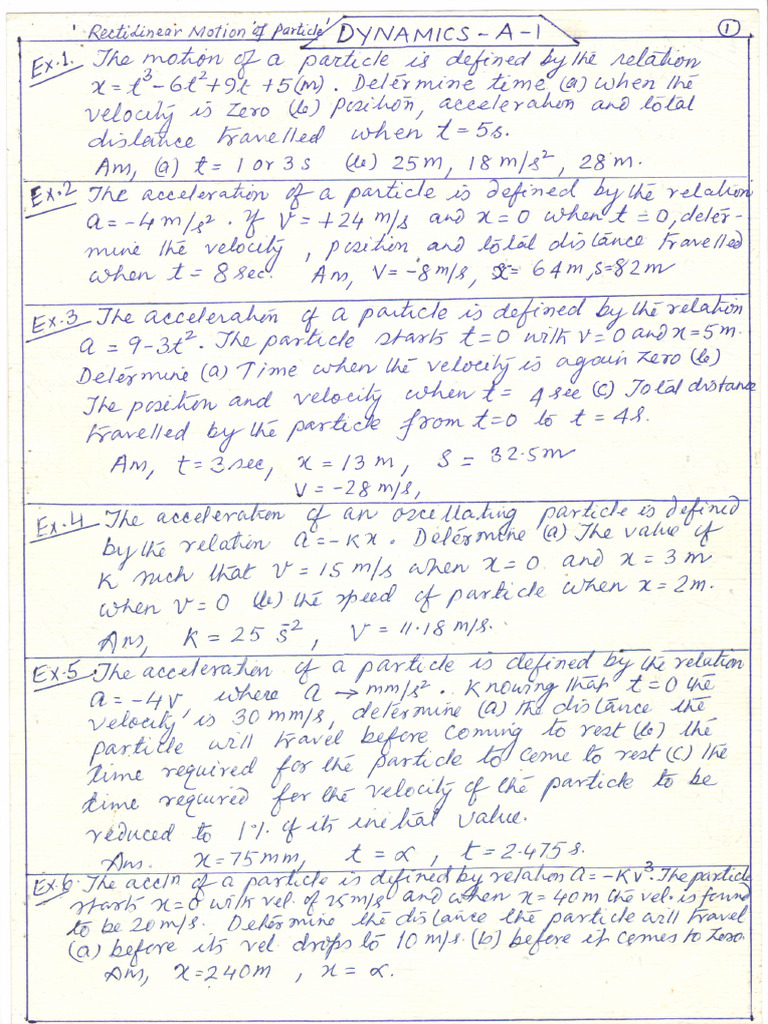 'Rectidinear Motion of Particle' DYNAMICS - A - 1 ①
Ex.1. The motion of a particle is defined by the relation
x = t³ - 6t² + 9t + 5 (m). Determine time, (a) when the
velocity is zero (b) position, acceleration and total
distance travelled when t = 5s.
Ans, (a) t = 1 or 3 s (b) 25 m, 18 m/s², 28 m.
Ex.2 The acceleration of a particle is defined by the relation
a = -4 m/s². If V = +24 m/s and x = 0 when t = 0, deter-
mine the velocity, position and total distance travelled
when t = 8 sec. Ans, V = -8 m/s, x = 64 m, s = 82 m
Ex.3 The acceleration of a particle is defined by the relation
a = 9 - 3t². The particle starts t = 0 with v = 0 and x = 5 m.
Determine (a) Time when the velocity is again zero (b)
The position and velocity when t = 4 sec (c) Total distance
travelled by the particle from t = 0 to t = 4s.
Ans, t = 3 sec, x = 13 m, S = 32.5m
V = -28 m/s,
Ex.4 The acceleration of an oscellating particle is defined
by the relation a = -Kx. Determine (a) The value of
K such that V = 15 m/s when x = 0 and x = 3 m
when V = 0 (b) the speed of particle when x = 2m.
Ans, K = 25 s̄², V = 11.18 m/s.
Ex.5 The acceleration of a particle is defined by the relation
a = -4v, where a → mm/s². Knowing that t = 0 the
velocity is 30 mm/s, determine (a) the distance the
particle will travel before coming to rest (b) the
time required for the particle to come to rest (c) the
time required for the velocity of the particle to be
reduced to 1% of its initial value.
Ans. x = 75 mm, t = α, t = 2.475 s.
Ex.6 The accln of a particle is defined by relation a = -Kv³. The particle
starts x = 0 with vel. of 25 m/s and when x = 40 m the vel. is found
to be 20 m/s. Determine the distance the particle will travel
(a) before its vel drops to 10 m/s. (b) before it comes to zero.
Ans, x = 240m, x = α.